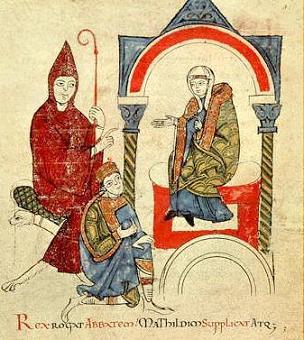 Rex rogat Abbatem / Mathildim supplicat Atq;